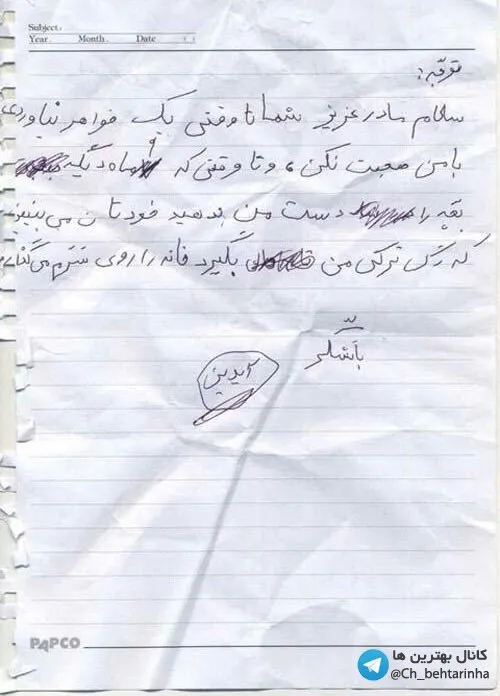 Subject:
Year. Month. Date
توجّه:
سلام مادر عزیز شما تا وقتی یک خواهر نیاوری
با من صحبت نکن، و تا وقتی که ماه دیگه
بچه را دست من بدهید خودتان می‌بینید
که رگ ترکی من بگیرد خانه را روی سَرَم می‌گذارم
با تشکر
آیدین
PAPCO
کانال بهترین ها
@Ch_behtarinha